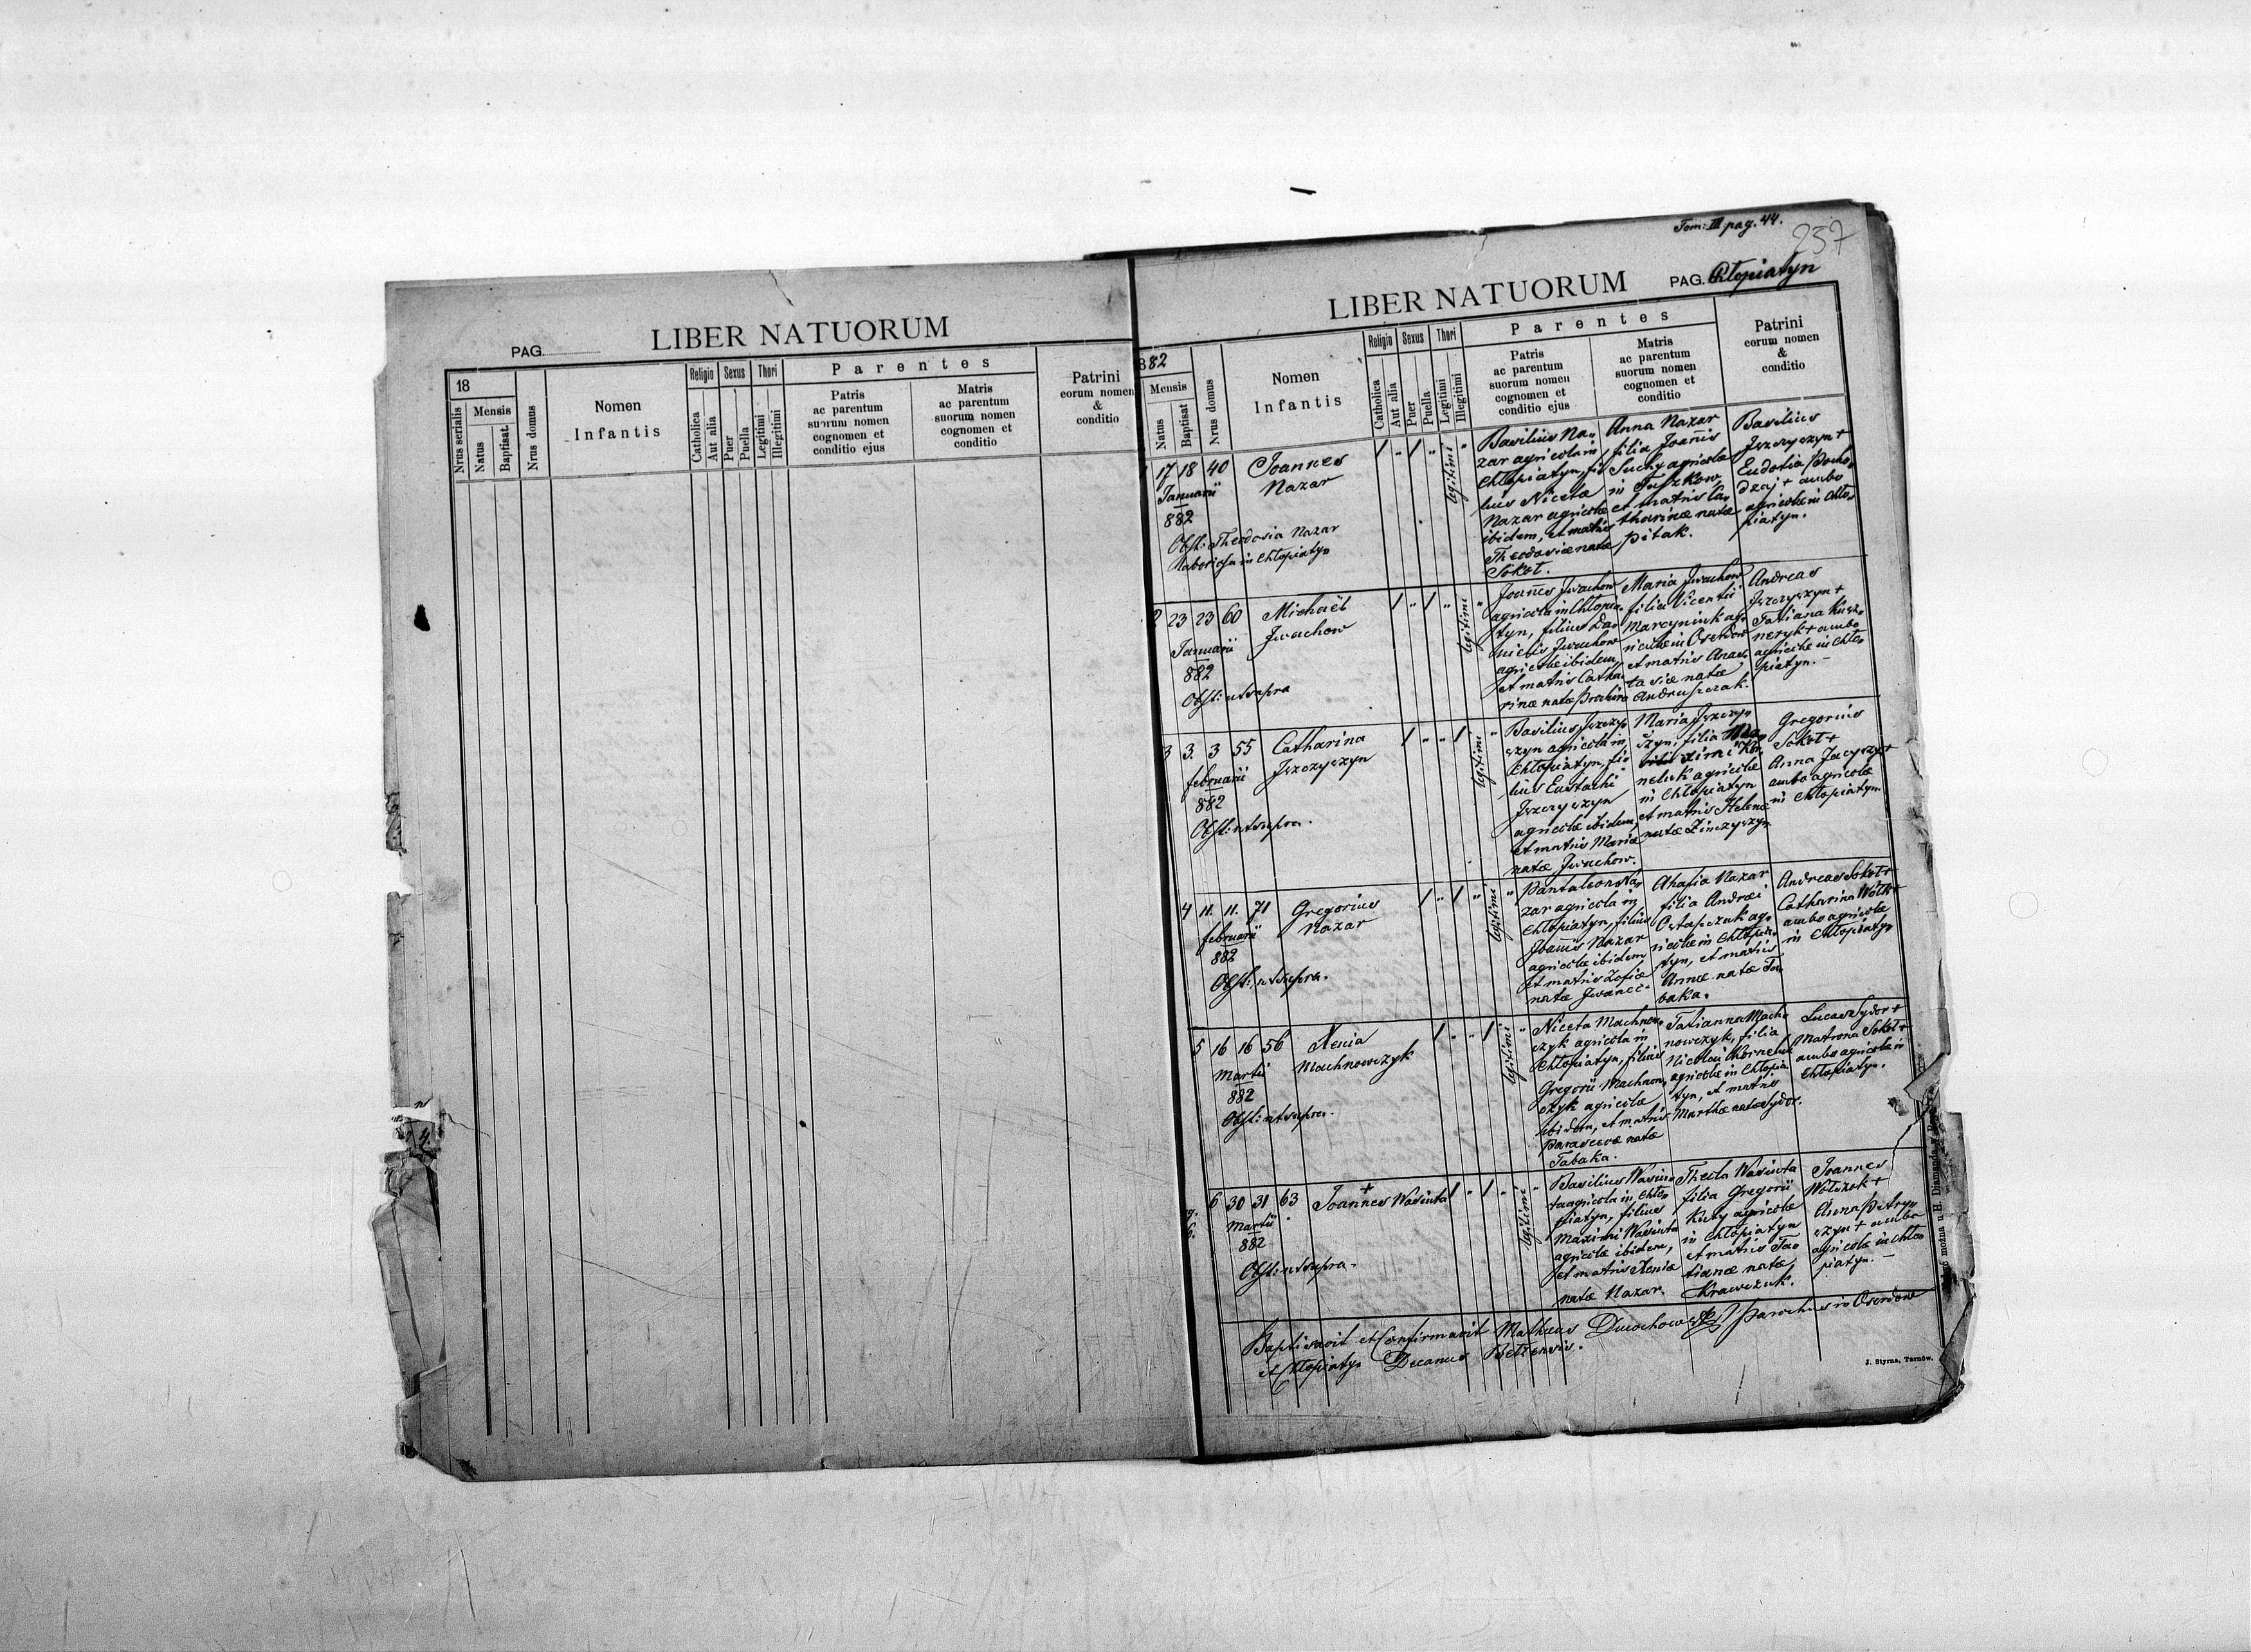 PAG.
LIBER NATUORUM
18
Nrus serialis
Mensis
Natus
Baptisat.
Nrus domus
Nomen
Infantis
Religio
Catholica
Aut alia
Sexus
Puer
Puella
Thori
Legitimi
Illegitimi
Parentes
Patris
ac parentum
suorum nomen
cognomen et
conditio ejus
Matris
ac parentum
suorum nomen
cognomen et
conditio
Patrini
eorum nomen
&
conditio
Tom: III pag. 44.
257
LIBER NATUORUM
PAG. Chłopiatyn
882
Mensis
Natus
Baptisat
Nrus domus
Nomen
Infantis
Religio
Catholica
Aut alia
Sexus
Puer
Puella
Thori
Legitimi
Illegitimi
Parentes
Patris
ac parentum
suorum nomen
cognomen et
conditio ejus
Matris
ac parentum
suorum nomen
cognomen et
conditio
Patrini
eorum nomen
&
conditio
17 18 40
Januarii
882
Joannes
Nazar
Obst: Theodosia Nazar
in Chłopiatyn
legitimi
Basilius Na-
zar agricola in
Chłopiatyn, fi-
lius Niceta
Nazar agricolæ
ibidem, et matris
Theodosiæ natæ
Sokoł.
Anna Nazar
filia Joañis
Suchy agricolæ
in Tuszkow
et matris Ca-
tharinæ natæ
Pitak.
Basilius
Jszczyszyn +
Eudotia
+ ambo
agricolæ in Chło-
piatyn.
2 23 23 60
Januarii
882
Michaël
Jwachow
Obst: ut supra
legitimi
Joañes Jwachow
agricola in Chłopia-
tyn, filius Da-
nielis Jwachow
agricolæ ibidem,
et matris Catha-
rinæ natæ
Maria Jwachow
filia Vicentii
Marcyniuk ag-
ricolæ in Oserdow
et matris Anas-
tasiæ natæ
Andruszczak.
Andreas
Jszczyszyn +
Tatiana Kusz-
neryk + ambo
agricolæ in Chło-
piatyn. –
3 3. 3 55
februarii
882
Catharina
Jszczyszyn
Obst: ut supra.
legitimi
Basilius Jszczy-
szyn agricola in
Chłopiatyn, fi-
lius Eustachi
Jszczyszyn
agricolæ ibidem,
et matris Mariæ
natæ Jwachow.
Maria Jszczy-
szyn, filia Ma-
ximi Kor-
neluk agricolæ
in Chłopiatyn
et matris Helenæ
natæ Zinczyszyn
Gregorius
Sokoł +
Anna Jacyszyn +
ambo agricolæ
in Chłopiatyn
4 11. 11. 71
februarii
882
Gregorius
Nazar
Obst: ut supra.
legitimi
Pantaleon Na-
zar agricola in
Chłopiatyn, filius
Joañis Nazar
agricolæ ibidem
et matris Zofiæ
natæ
Ahafia Nazar
filia Andrei
Ostapczuk ag-
ricolæ in Chłopia-
tyn, et matris
Annæ natæ Ta-
baka.
Andreas Sokoł +
Catharina +
ambo agricolæ
in Chłopiatyn
5 16 16 56
Martii
882
Xenia
Machnowczyk
Obst: ut supra.
legitimi
Niceta Machnow-
czyk agricola in
Chłopiatyn, filius
Gregorii Machnow-
czyk agricolæ
ibidem, et matris
Parascevæ natæ
Tabaka.
Tatianna Mach-
nowczyk, filia
Nicolai Korneluk
agricolæ in Chłopia-
tyn, et matris
Marthæ natæ Sydor.
Lucas Sydor +
Matrona Sokoł +
ambo agricolæ in
Chłopiatyn.
6 30 31 63
Martii
882
+
Joannes Wasiuta
Obst: ut supra.
legitimi
Basilius Wasiu-
ta agricola in Chło-
piatyn, filius
Maximi Wasiuta
agricolæ ibidem,
et matris Xeniæ
natæ Nazar.
Thecla Wasiuta
filia Gregorii
Kuzy agricolæ
in Chłopiatyn
et matris Ta-
tianæ natæ
Krawczuk.
Joannes
Wołczok +
Anna Petryn-
szyn + ambo
agricolæ in Chło-
piatyn. –
Baptisavit et Confirmavit Matheus Ducochowski Parochus in Oserdow
et Chłopiatyn Decanus Bełzensis.
J. Styrna, Tarnów.
można u H. Diamanda